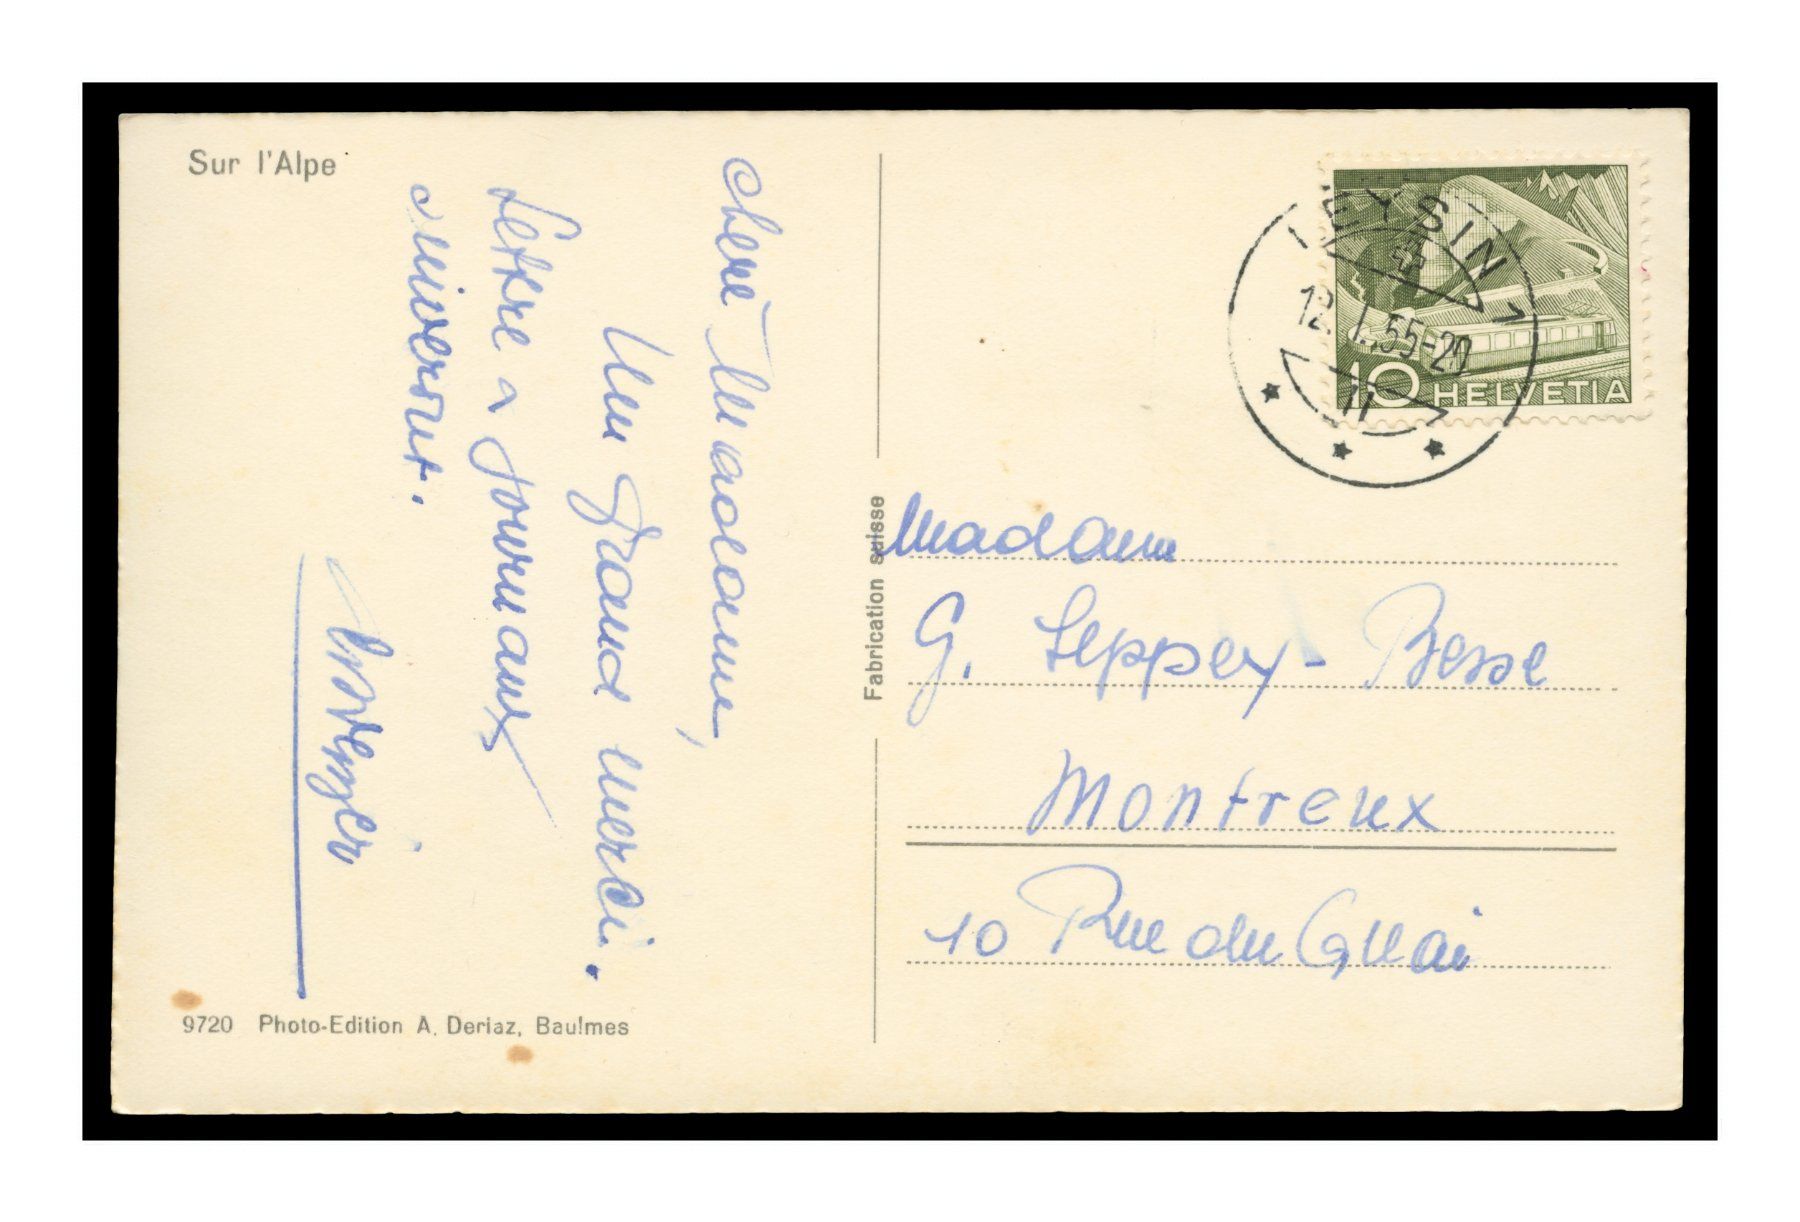 Sur l'Alpe
cheré Madame,
Un grand merci.
Lettre a journaux
suiveront.
Fabrication suisse
9720 Photo-Edition A. Deriaz, Baulmes
EYSIN
12. I. 55-20
11
10 HELVETIA
Madame
G. Seppey - Besse
Montreux
10 Rue du Quai